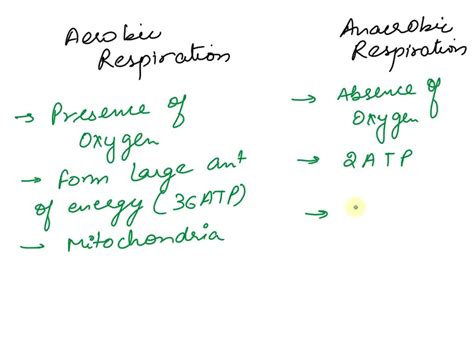 Aerobic
Respiration
→ Presence of
Oxygen
→ form large amt
of energy (36ATP)
→ Mitochondria
Anaerobic
Respiration
→ Absence of
Oxygen
→ 2ATP
→